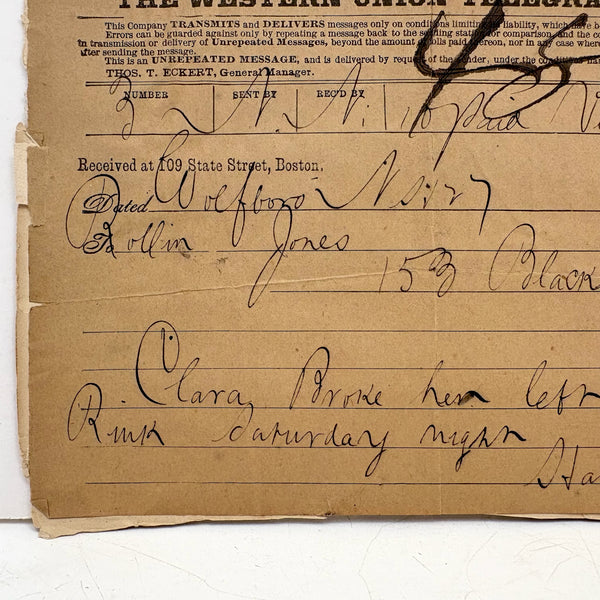 THE WESTERN UNION TELEGRA
This Company TRANSMITS and DELIVERS messages only on conditions limiting its liability, which have b
Errors can be guarded against only by repeating a message back to the sending station for comparison, and the co
in transmission or delivery of Unrepeated Messages, beyond the amount of tolls paid thereon, nor in any case where
after sending the message.
This is an UNREPEATED MESSAGE, and is delivered by request of the sender, under the conditions na
THOS. T. ECKERT, General Manager.
45
NUMBER SENT BY REC'D BY
3 N. N. 10 paid
Received at 109 State Street, Boston.
Dated Wolfboro N H 27
To Rollin Jones
153 Black
Clara Broke her left
Rink Saturday night
Ha